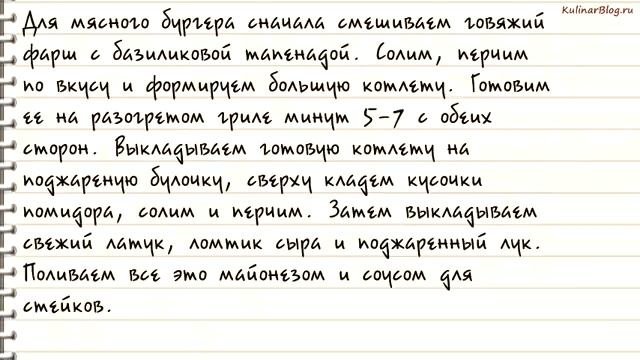 KulinarBlog.ru
Для мясного бургера сначала смешиваем говяжий
фарш с базиликовой тапенадой. Солим, перчим
по вкусу и формируем большую котлету. Готовим
ее на разогретом гриле минут 5-7 с обеих
сторон. Выкладываем готовую котлету на
поджареную булочку, сверху кладем кусочки
помидора, солим и перчим. Затем выкладываем
свежий латук, ломтик сыра и поджаренный лук.
Поливаем все это майонезом и соусом для
стейков.